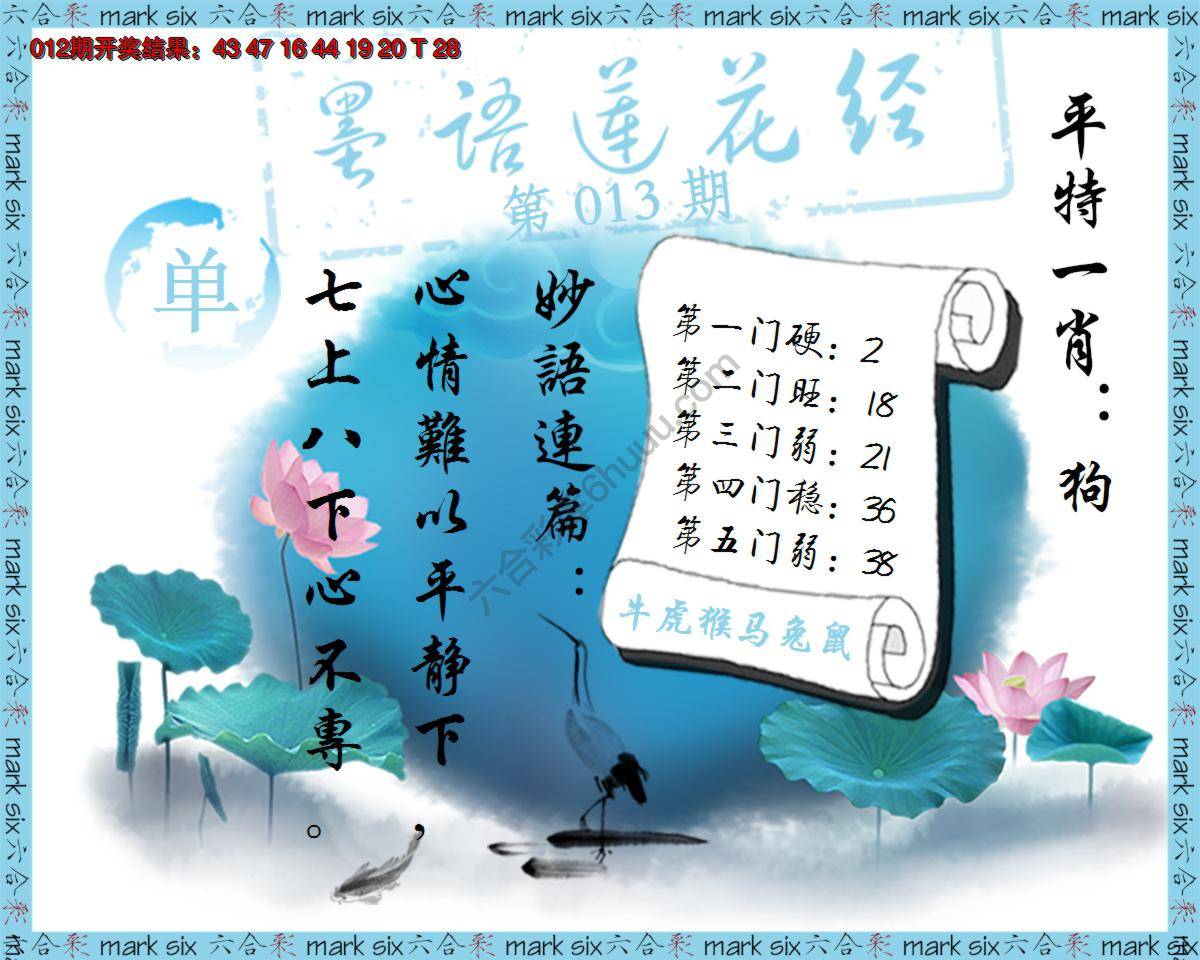 六合彩 mark six 六合彩 mark six 六合彩 mark six 六合彩 mark six 六合彩 mark six 六合彩 mark six
012期开奖结果：43 47 16 44 19 20 T 28
墨语莲花经
第 013 期
单
平特一肖：狗
妙語連篇：
心情難以平静下，
七上八下心不專。
第一门硬：2
第二门旺：18
第三门弱：21
第四门稳：36
第五门弱：38
牛虎猴马兔鼠
六合彩 mark six 六合彩 mark six 六合彩 mark six 六合彩 mark six 六合彩 mark six 六合彩 mark six